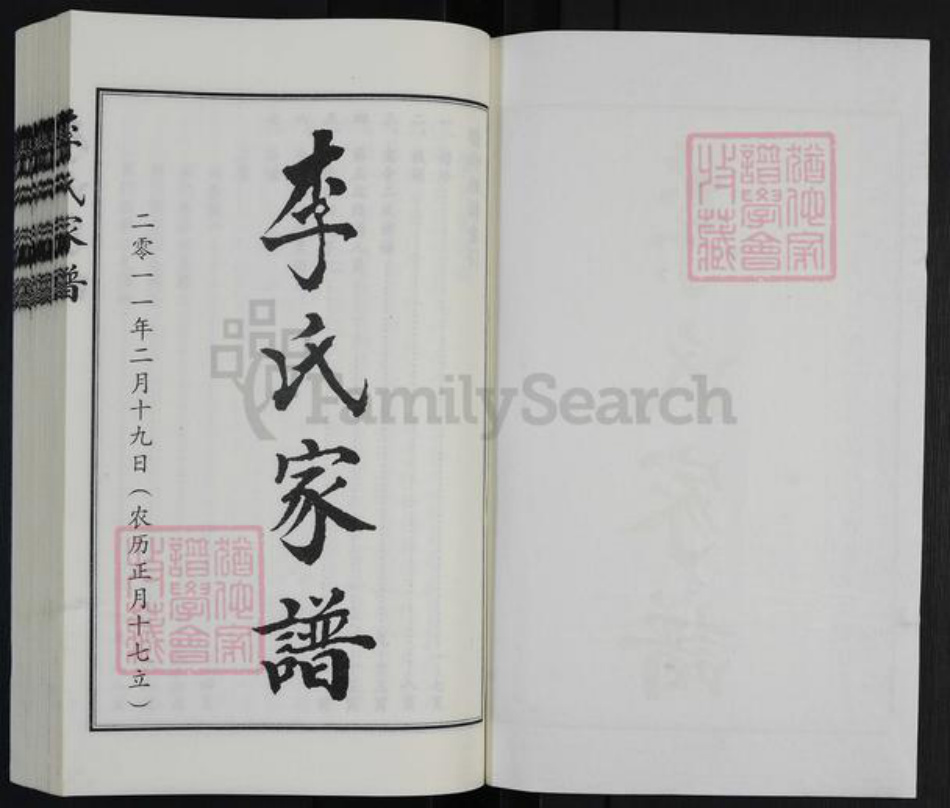 李氏家譜
二零一一年二月十九日（农历正月十七立）
猶他家
譜學會
收藏
猶他家
譜學會
收藏
李氏家譜
FamilySearch